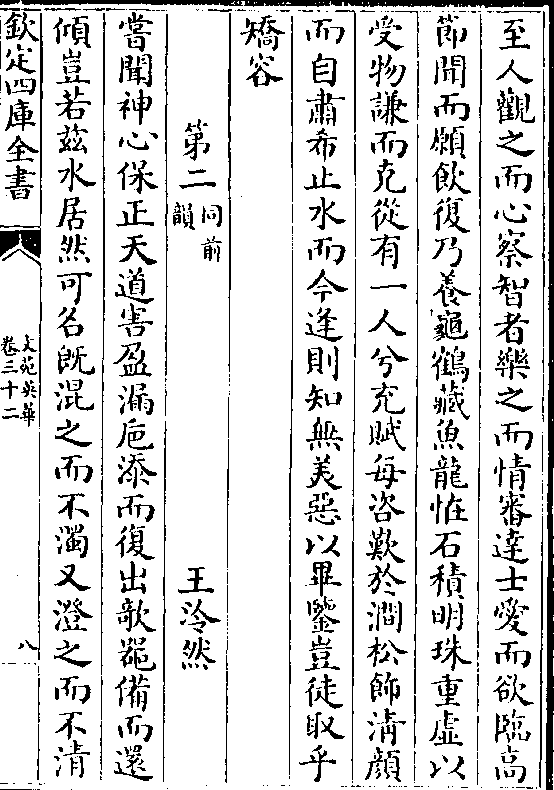 至人觀之而心察智者樂之而情審達士愛而欲臨高
節聞而願飲復乃養龜鶴藏魚龍恠石積明珠重虛以
受物謙而克從有一人兮充賦每咨歎於澗松飾清顔
而自肅希止水而今逢則知無美惡以畢鑒豈徒取乎
矯容
第二同前韻 王泠然
嘗聞神心保正天道害盈漏巵添而復出欹器備而還
傾豈若茲水居然可名既混之而不濁又澄之而不清
欽定四庫全書
文苑英華
卷三十二
八